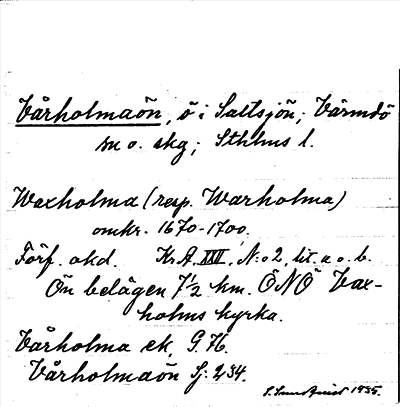 Vårholmaön, ö i Saltsjön; Värmdö
sn o. skg; Sthlms l.
Waxholma (resp. Warholma)
omkr. 1670-1700,
Förf. okd. Kr. A. XXI, N:o 2, lit. a o. b.
Ön belägen 7 1/2 km. ÖNÖ Vax-
holms kyrka.
Vårholma ek. G. 76.
Vårholmaön Sj: 234.
1935.